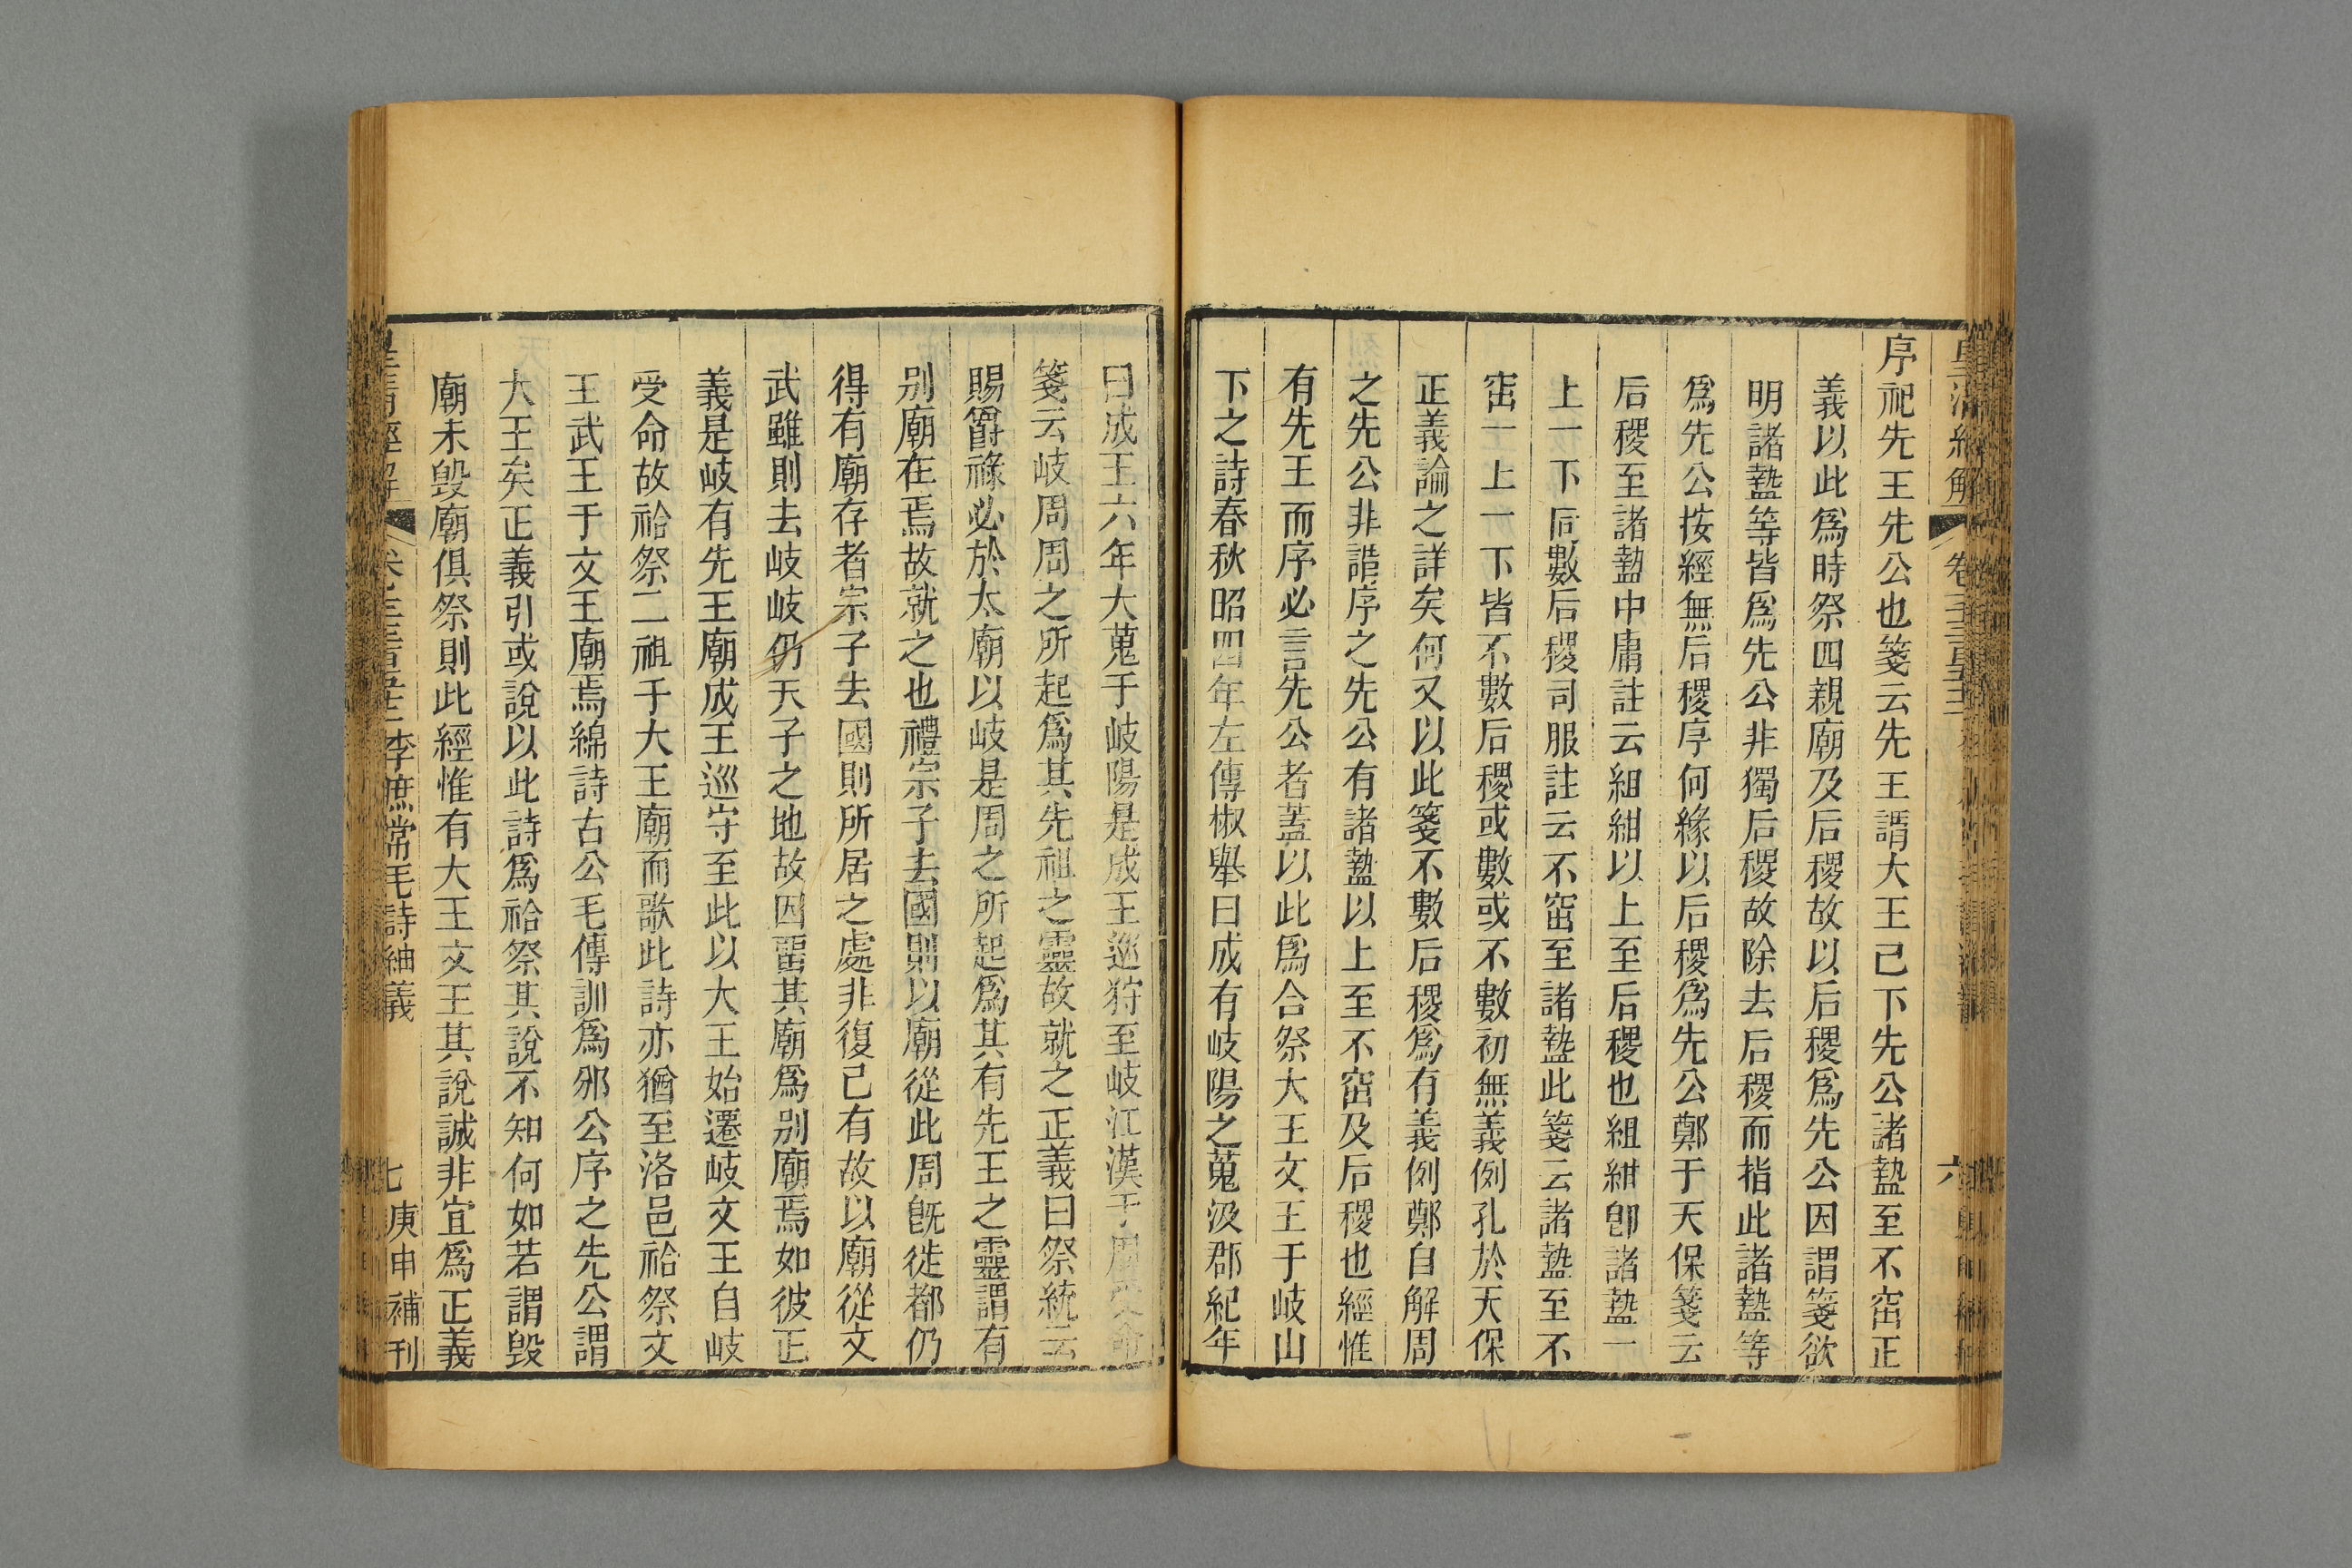 皇清經解
卷
六
序祀先王先公也箋云先王謂大王已下先公諸盩至不窋正
義以此爲時祭四親廟及后稷故以后稷爲先公因謂箋欲
明諸盩等皆爲先公非獨后稷故除去后稷而指此諸盩等
爲先公按經無后稷序何緣以后稷爲先公鄭于天保箋云
后稷至諸盩中庸註云組紺以上至后稷也組紺卽諸盩一
上一下同數后稷司服註云不窋至諸盩此箋云諸盩至不
窋一上一下皆不數后稷或數或不數初無義例孔於天保
正義論之詳矣何又以此箋不數后稷爲有義例鄭自解周
之先公非謂序之先公有諸盩以上至不窋及后稷也經惟
有先王而序必言先公者蓋以此爲合祭大王文王于岐山
下之詩春秋昭四年左傳椒舉曰成有岐陽之蒐汲郡紀年
曰成王六年大蒐于岐陽是成王巡狩至岐江漢于周受命
箋云岐周周之所起爲其先祖之靈故就之正義曰祭統云
賜爵祿必於太廟以岐是周之所起爲其有先王之靈謂有
别廟在焉故就之也禮宗子去國則以廟從此周旣徙都仍
得有廟存者宗子去國則所居之處非復已有故以廟從文
武雖則去岐岐仍天子之地故因畱其廟爲别廟焉如彼正
義是岐有先王廟成王巡守至此以大王始遷岐文王自岐
受命故祫祭二祖于大王廟而歌此詩亦猶至洛邑祫祭文
王武王于文王廟焉綿詩古公毛傳訓爲邠公序之先公謂
大王矣正義引或說以此詩爲祫祭其說不知何如若謂毁
廟未毁廟俱祭則此經惟有大王文王其說誠非宜爲正義
皇清經解
李庶常毛詩紬義
七
庚申補刊